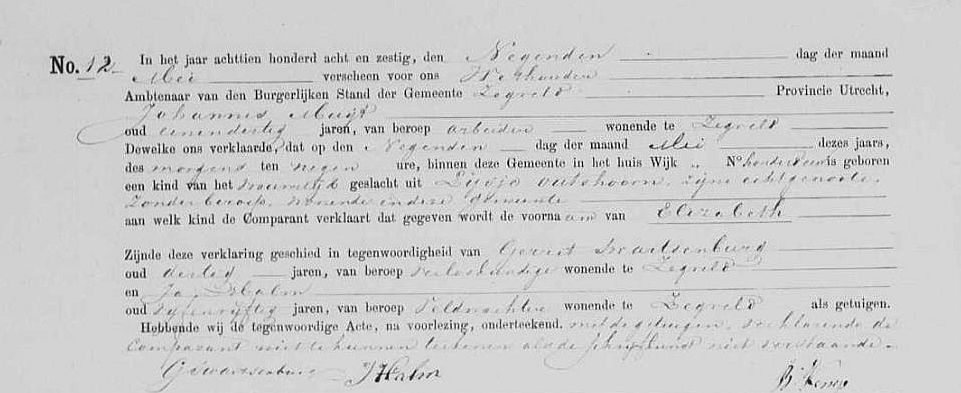 No. 12 In het jaar achttien honderd acht en zestig, den Negenden dag der maand
Mei verscheen voor ons Wethouder
Ambtenaar van den Burgerlijken Stand der Gemeente Zegveld Provincie Utrecht,
Johannes Muijt
oud eenendertig jaren, van beroep arbeider wonende te Zegveld
Dewelke ons verklaarde, dat op den Negenden dag der maand Mei dezes jaars,
des morgens ten negen ure, binnen deze Gemeente in het huis Wijk „ No honderd is geboren
een kind van het Vrouwelijk geslacht uit Outshoorn, zijne echtgenoote,
zonder beroep, wonende in deze Gemeente
aan welk kind de Comparant verklaart dat gegeven wordt de voornaam van Elizabeth
Zijnde deze verklaring geschied in tegenwoordigheid van Gerrit Swartsenburg
oud dertig jaren, van beroep verloskundige wonende te Zegveld
en Ja Halm
oud vijfenvijftig jaren, van beroep Veldwachter wonende te Zegveld als getuigen.
Hebbende wij de tegenwoordige Acte, na voorlezing, onderteekend, met de getuigen, verklarende de
Comparant niet te kunnen teekenen als de schrijfkunst niet verstaande.
G Swartsenburg J Halm